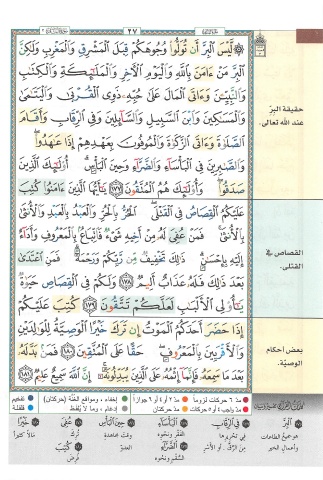 ٢٧
۞ لَّيْسَ ٱلْبِرَّ أَن تُوَلُّوا۟ وُجُوهَكُمْ قِبَلَ ٱلْمَشْرِقِ وَٱلْمَغْرِبِ وَلَٰكِنَّ
ٱلْبِرَّ مَنْ ءَامَنَ بِٱللَّهِ وَٱلْيَوْمِ ٱلْءَاخِرِ وَٱلْمَلَٰٓئِكَةِ وَٱلْكِتَٰبِ
وَٱلنَّبِيِّۦنَ وَءَاتَى ٱلْمَالَ عَلَىٰ حُبِّهِۦ ذَوِى ٱلْقُرْبَىٰ وَٱلْيَتَٰمَىٰ
وَٱلْمَسَٰكِينَ وَٱبْنَ ٱلسَّبِيلِ وَٱلسَّآئِلِينَ وَفِى ٱلرِّقَابِ وَأَقَامَ
ٱلصَّلَوٰةَ وَءَاتَى ٱلزَّكَوٰةَ وَٱلْمُوفُونَ بِعَهْدِهِمْ إِذَا عَٰهَدُوا۟ۖ
وَٱلصَّٰبِرِينَ فِى ٱلْبَأْسَآءِ وَٱلضَّرَّآءِ وَحِينَ ٱلْبَأْسِۗ أُو۟لَٰٓئِكَ ٱلَّذِينَ
صَدَقُوا۟ۖ وَأُو۟لَٰٓئِكَ هُمُ ٱلْمُتَّقُونَ ١٧٧ يَٰٓأَيُّهَا ٱلَّذِينَ ءَامَنُوا۟ كُتِبَ
عَلَيْكُمُ ٱلْقِصَاصُ فِى ٱلْقَتْلَىۖ ٱلْحُرُّ بِٱلْحُرِّ وَٱلْعَبْدُ بِٱلْعَبْدِ وَٱلْأُنثَىٰ
بِٱلْأُنثَىٰۚ فَمَنْ عُفِىَ لَهُۥ مِنْ أَخِيهِ شَىْءٌ فَٱتِّبَاعٌۢ بِٱلْمَعْرُوفِ وَأَدَآءٌ
إِلَيْهِ بِإِحْسَٰنٍۗ ذَٰلِكَ تَخْفِيفٌ مِّن رَّبِّكُمْ وَرَحْمَةٌۗ فَمَنِ ٱعْتَدَىٰ
بَعْدَ ذَٰلِكَ فَلَهُۥ عَذَابٌ أَلِيمٌ ١٧٨ وَلَكُمْ فِى ٱلْقِصَاصِ حَيَوٰةٌ
يَٰٓأُو۟لِى ٱلْأَلْبَٰبِ لَعَلَّكُمْ تَتَّقُونَ ١٧٩ كُتِبَ عَلَيْكُمْ
إِذَا حَضَرَ أَحَدَكُمُ ٱلْمَوْتُ إِن تَرَكَ خَيْرًا ٱلْوَصِيَّةُ لِلْوَٰلِدَيْنِ
وَٱلْأَقْرَبِينَ بِٱلْمَعْرُوفِۖ حَقًّا عَلَى ٱلْمُتَّقِينَ ١٨٠ فَمَنۢ بَدَّلَهُۥ
بَعْدَ مَا سَمِعَهُۥ فَإِنَّمَآ إِثْمُهُۥ عَلَى ٱلَّذِينَ يُبَدِّلُونَهُۥٓۚ إِنَّ ٱللَّهَ سَمِيعٌ عَلِيمٌ ١٨١
حقيقة البرّ
عند الله تعالى
القصاص في
القتلى.
بعض أحكام
الوصيّة.
مدّ ٦ حركات لزوماً مدّ ٢ أو ٤ أو ٦ جوازاً إخفاء، ومواقع الغُنَّة (حركتان) تفخيم
مدّ واجب ٤ أو ٥ حركات مدّ حركتان إدغام، وما لا يُلفَظ قلقلة
البِرَّ
هو جميع الطاعات
وأعمال الخير
في الرِّقاب
في تحريرها
من الرِّقّ أو الأسر
البأساء
الفقر ونحوه
الضّرّاء
السُّقم ونحوه
حين البأس
وقت مجاهدة
العدوّ
عُفِيَ
تُرِكَ
كُتِبَ
فُرِضَ
خَيْرًا
مالًا كثيراً